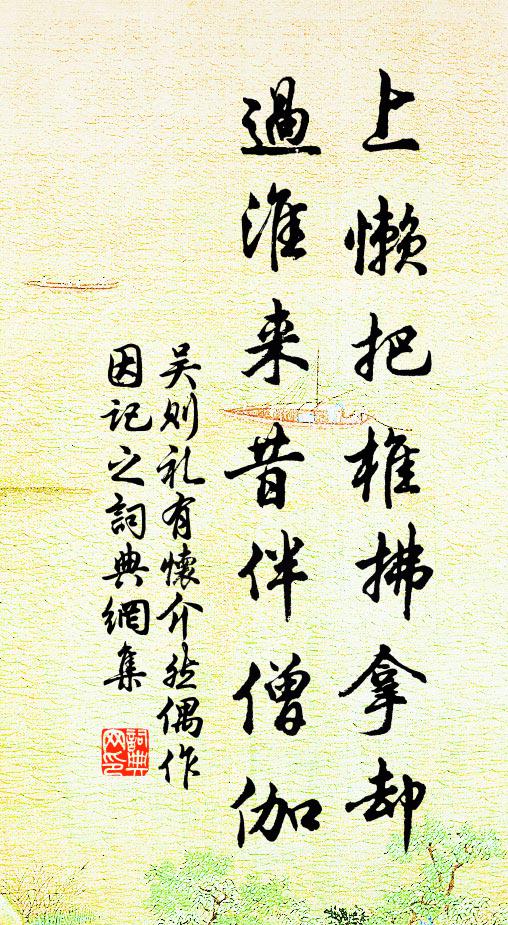 上懒把椎拂拿却
過淮来昔伴僧伽
吴则礼有懷介然偶作
因记之詞典網集
詞典网印